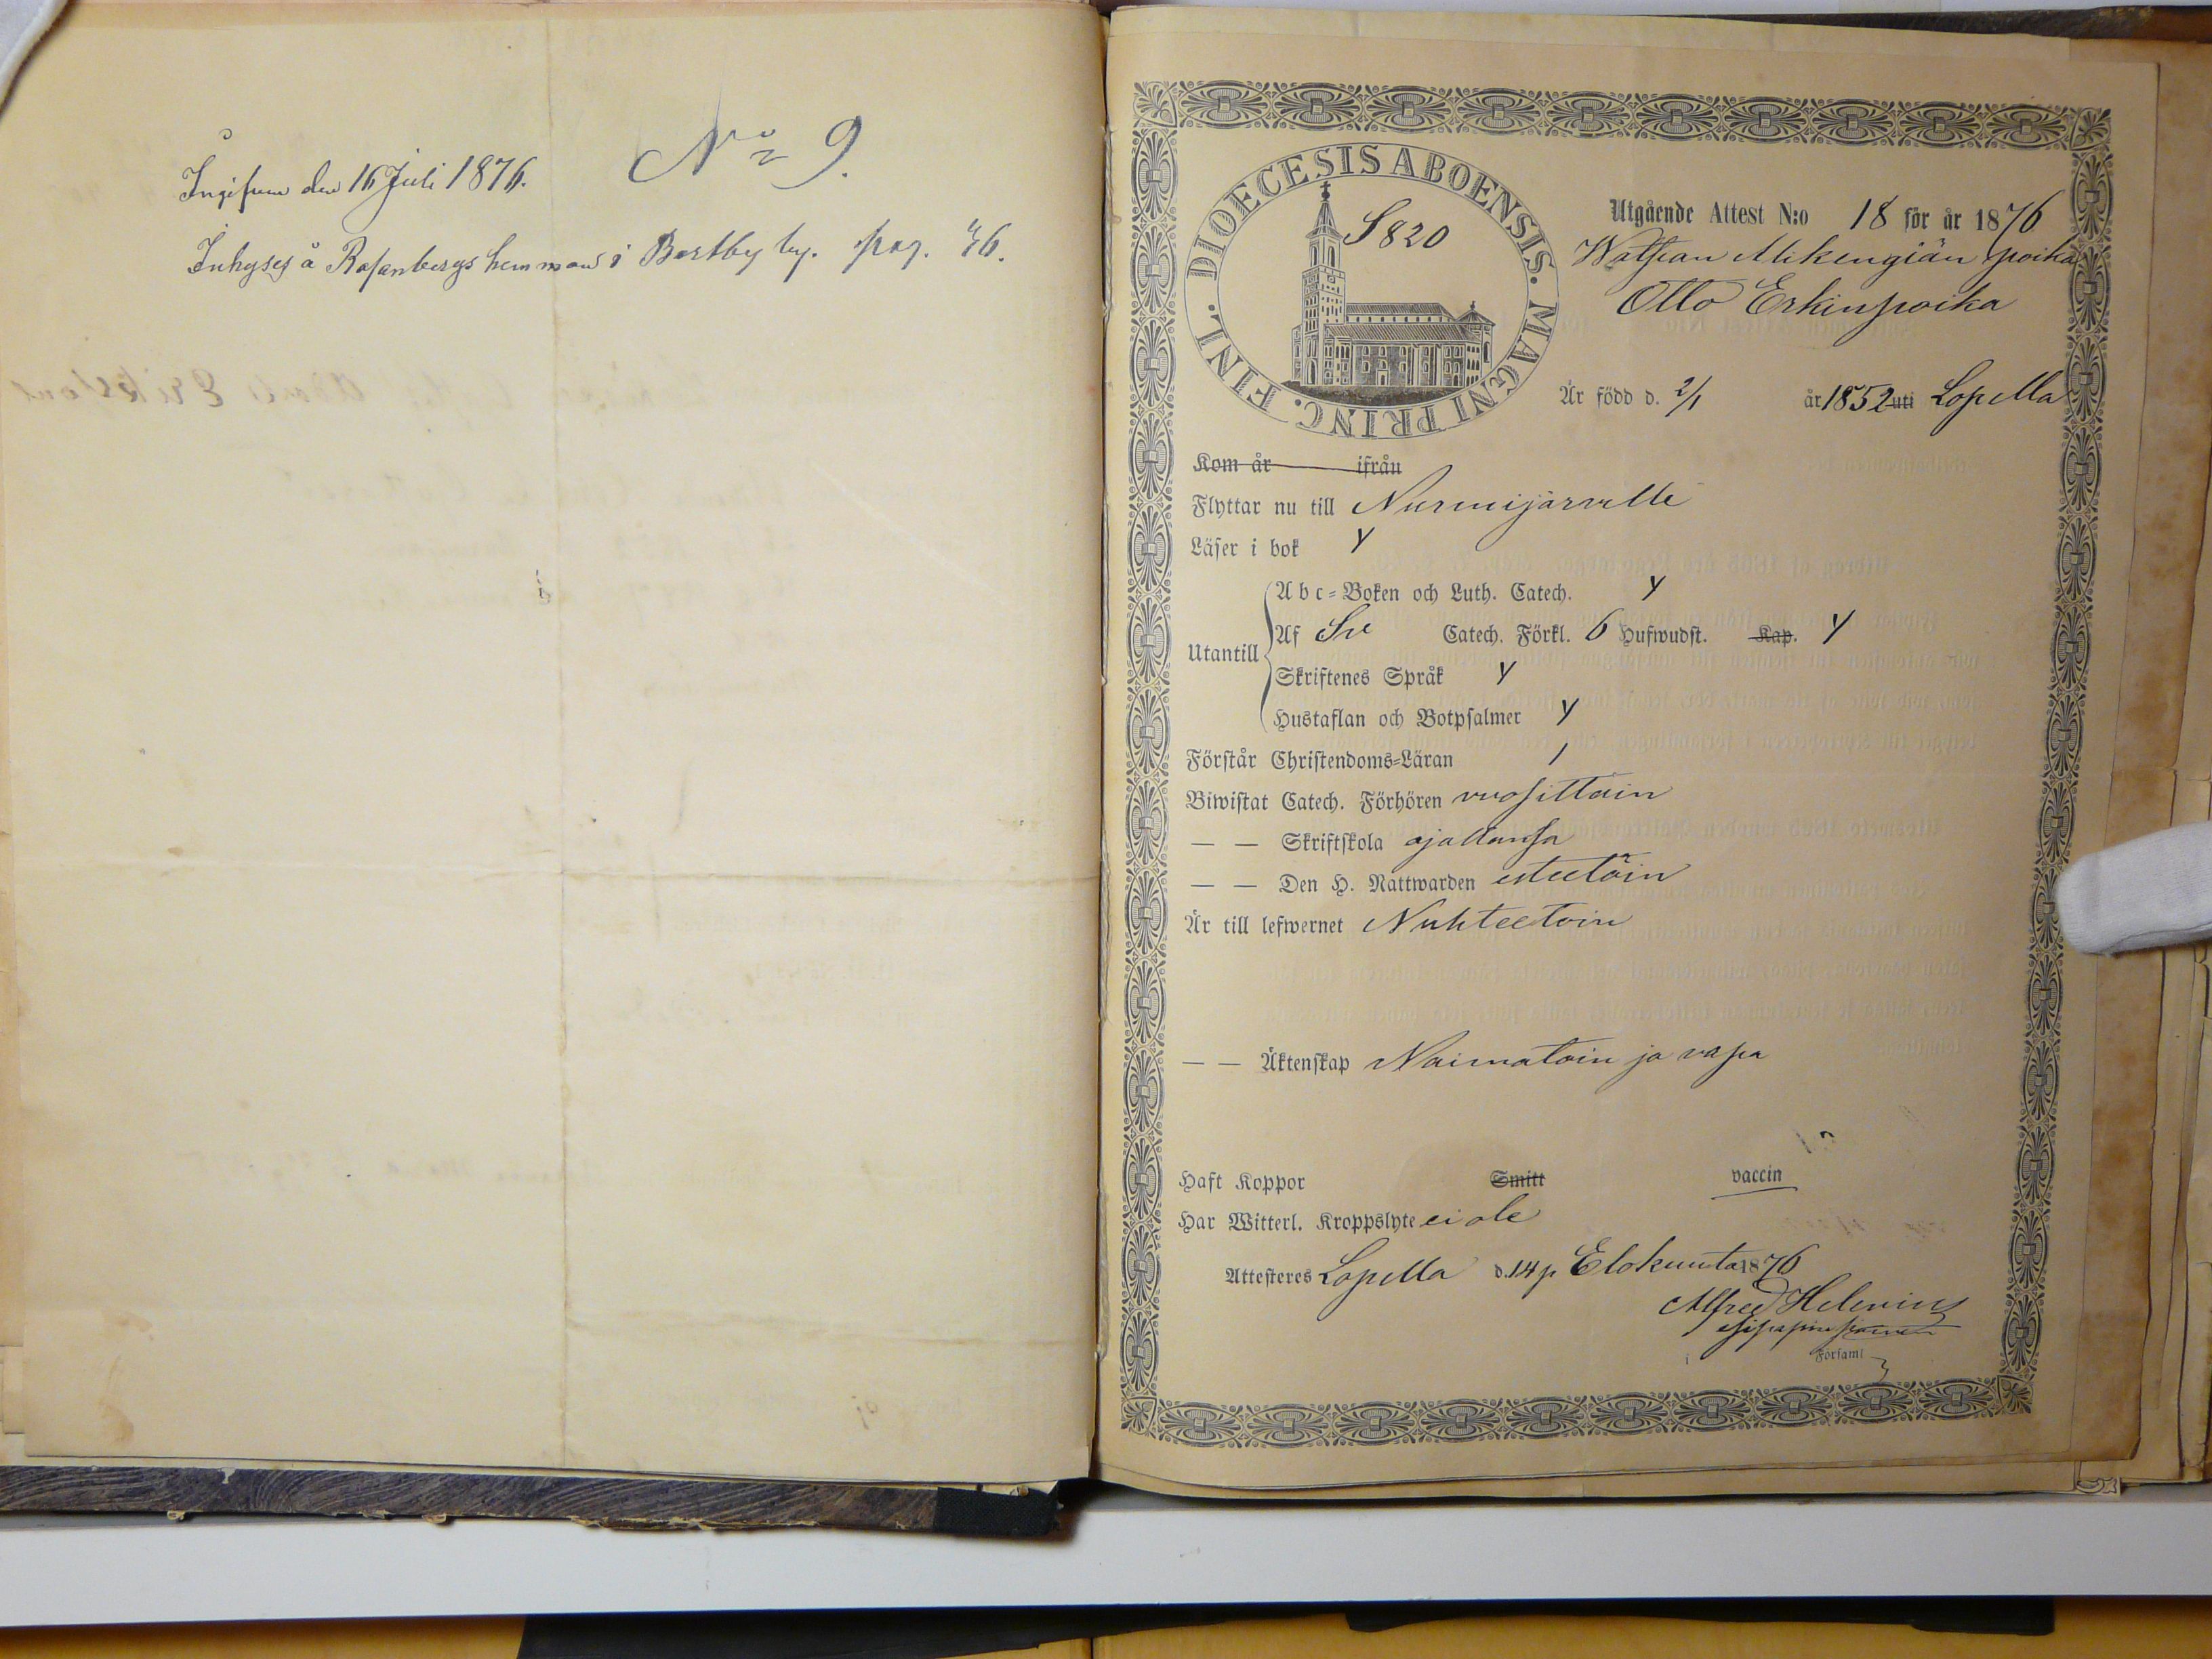 No 9.
den 16 Juli 1876.
Inhyses å Rosenbergs hemman i Bortby by. pag. 46.
DIOECESIS ABOENSIS. MAGNI PRINC. FINL.
S 820
Utgående Attest N:o 18 för år 1876
poika
Otto Erkinpoika
Är född d. 2/1 år 1852 uti Lopella
Kom år ifrån
Flyttar nu till Nurmijärvelle
Läser i bok y
Utantill
Abc-Boken och Luth. Catech. y
Af Sve Catech. Förkl. 6 Hufwudst. Kap. y
Skriftenes Språk y
Hustaflan och Botpsalmer y
Förstår Christendoms-Läran 1
Biwistat Catech. Förhören vuosittain
— — Skriftskola ajallansa
— — Den H. Nattwarden esteetöin
Är till lefwernet Nuhteetoin
— — Äktenskap Naimatoin ja vapa
Haft Koppor Smitt vaccin
Har Witterl. Kroppslyte ei ole
Attesteres Lopella d. 14 p. Elokuuta 1876
Alfred Helenius
i Församl